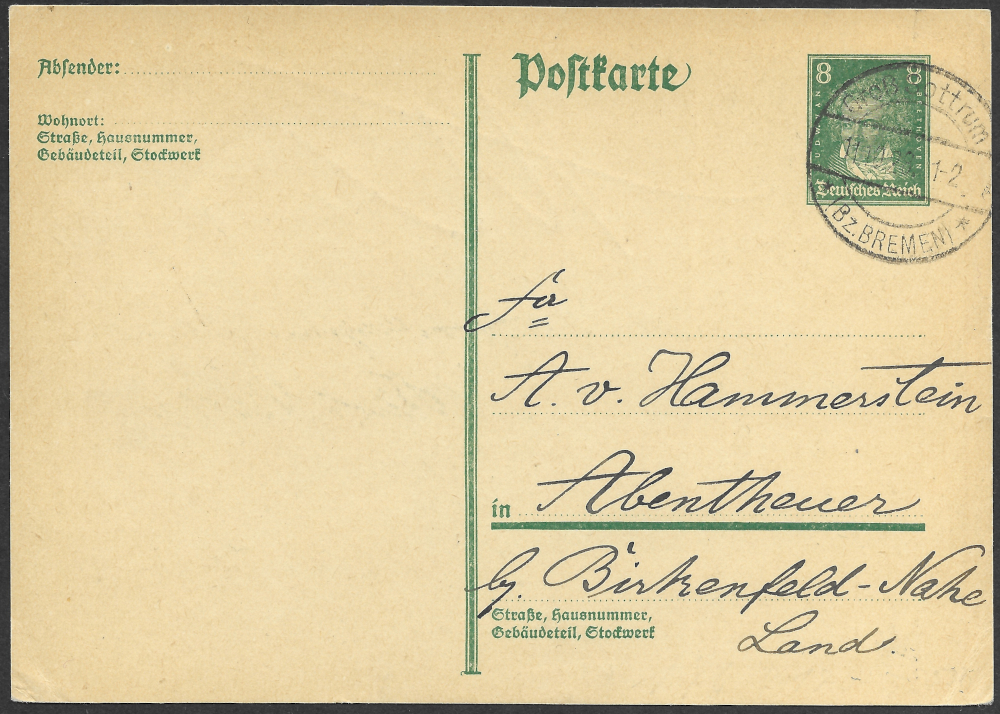 Absender:
Wohnort:
Straße, Hausnummer,
Gebäudeteil, Stockwerk
Postkarte
8 8
LUDWIG VAN BEETHOVEN
Deutsches Reich
Groß Sottrum
1-2
(Bz. BREMEN) *
Fa
A. v. Hammerstein
in Abentheuer
by. Birkenfeld-Nahe
Straße, Hausnummer,
Gebäudeteil, Stockwerk
Land.